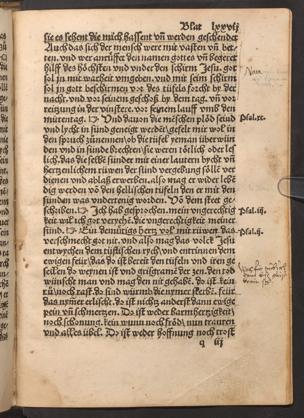 Blat lxxvij
sie es sehent die mich hassent vñ werden geschendet
Auch das sich der mensch were mit vasten vñ bet-
ten. vnd wer anrüffet den namen gottes vñ begert
hilff des höchsten vnd vnder den schirm Jesu. got
sol in mit warheit vmgeben. vnd mit seim schirm
sol in gott beschirmen vor des tüfels forcht by der
nacht. vnd vor seinem geschoß by dem tag. vñ vor
reitzung in der vinstere. vor seinem lauff vmb den
mittentag. Vnd dauon die mēschen plöd seind
vnd lycht in sünd geneigt werdēt
den spruch zünemen/ob die tüfel yeman überwün
den vnd in sünde brechten/sie weren tödlich oder leß
lich. das die selbe sünder mit einer lautern bycht vñ
hertzenlichem rüwen der sünd vergebung söllē ver
dienen vnd ablaß erwerben. also mag er wider lebē
dig werden vō den hellischen tüfeln den er mit den
sünden was vndertenig worden. Vō dem steet ge-
schriben. Ich hab gesprochen. mein vngerechtig
keit wil ich got veryehē. die vngerechtikeit meiner
sünd. Ein demütigs hertz vol mit rüwen. das
verschmecht got nit. vnd also mag das volck Jesu
entwychen dem tüflischen rych. vnd entrinnen dem
ewigen feür/das do ist bereit den tüfeln vnd iren ge
sellen do weynen ist vnd grißgramē der zen. den tod
wünscht man vnd mag den nit gehabē. do ist kein
rů/noch rast. do sind würmb die nymer sterbē. feür
das nymer erlischt. do ist nichtz anderst dann ewige
pein vñ schmertzen. Do ist weder barmhertzigkeit
noch schonung. kein wunn noch fröd/ nun trauren
vnd alles übel. Do ist weder hoffnung noch trost
q iij
Psal. iij.
Psal. ij.